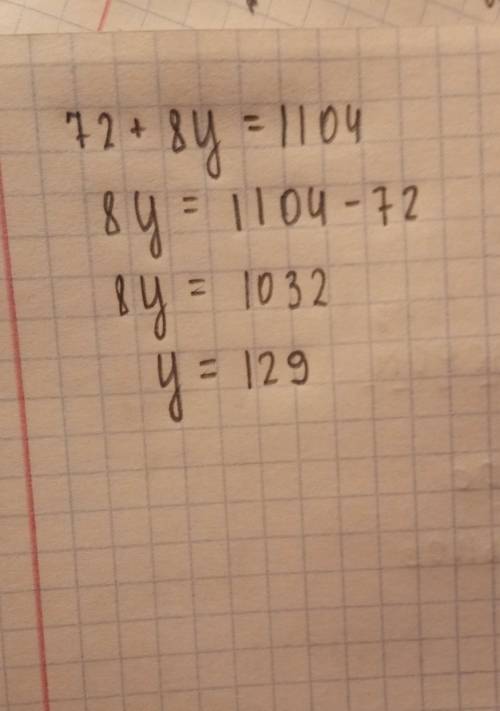 72 + 8y = 1104
8y = 1104 - 72
8y = 1032
y = 129